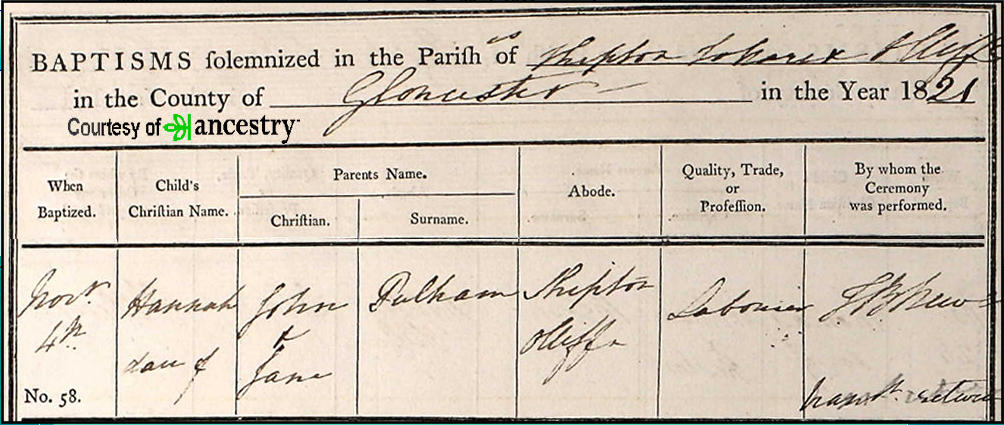 BAPTISMS solemnized in the Parish of Shipton Sollars & Olliffe
in the County of Gloucester in the Year 1821
Courtesy of ancestry
When Baptized.
Child's Christian Name.
Parents Name.
Christian.
Surname.
Abode.
Quality, Trade, or Profession.
By whom the Ceremony was performed.
Novr
4th
Hannah
dau of
John
&
Jane
Pulham
Shipton
Olliffe
Labourer
No. 58.